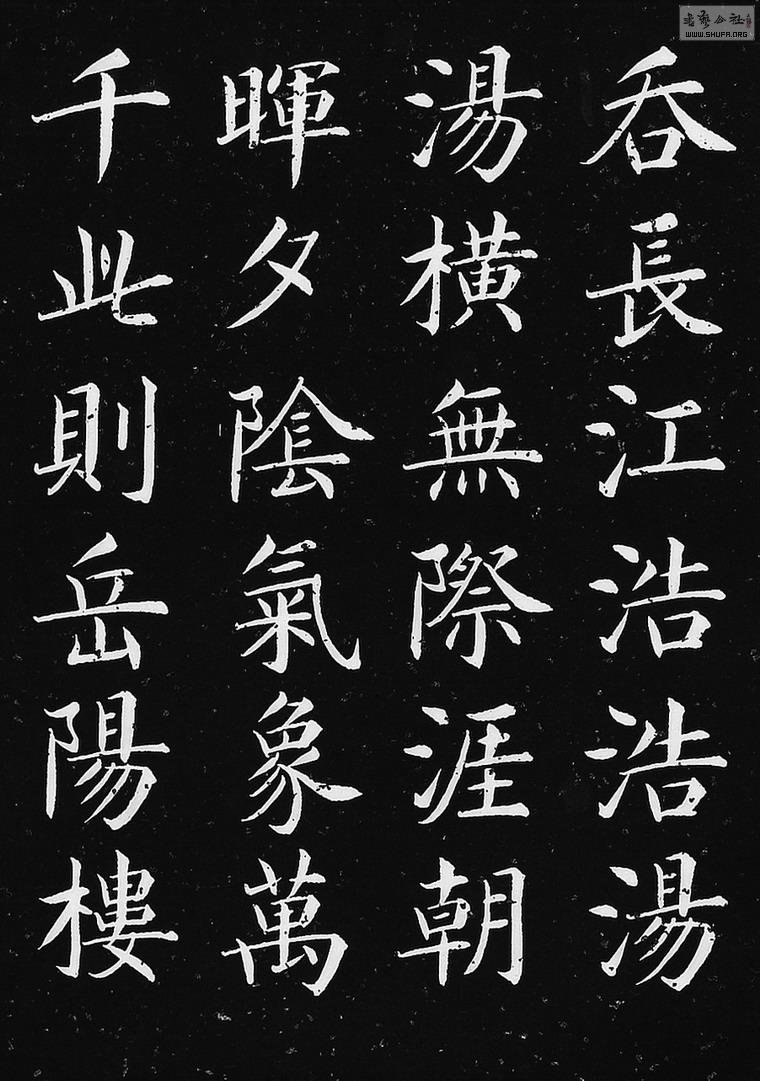 吞長江浩浩湯
湯橫無際涯朝
暉夕陰氣象萬
千此則岳陽樓
WWW.SHUFA.ORG